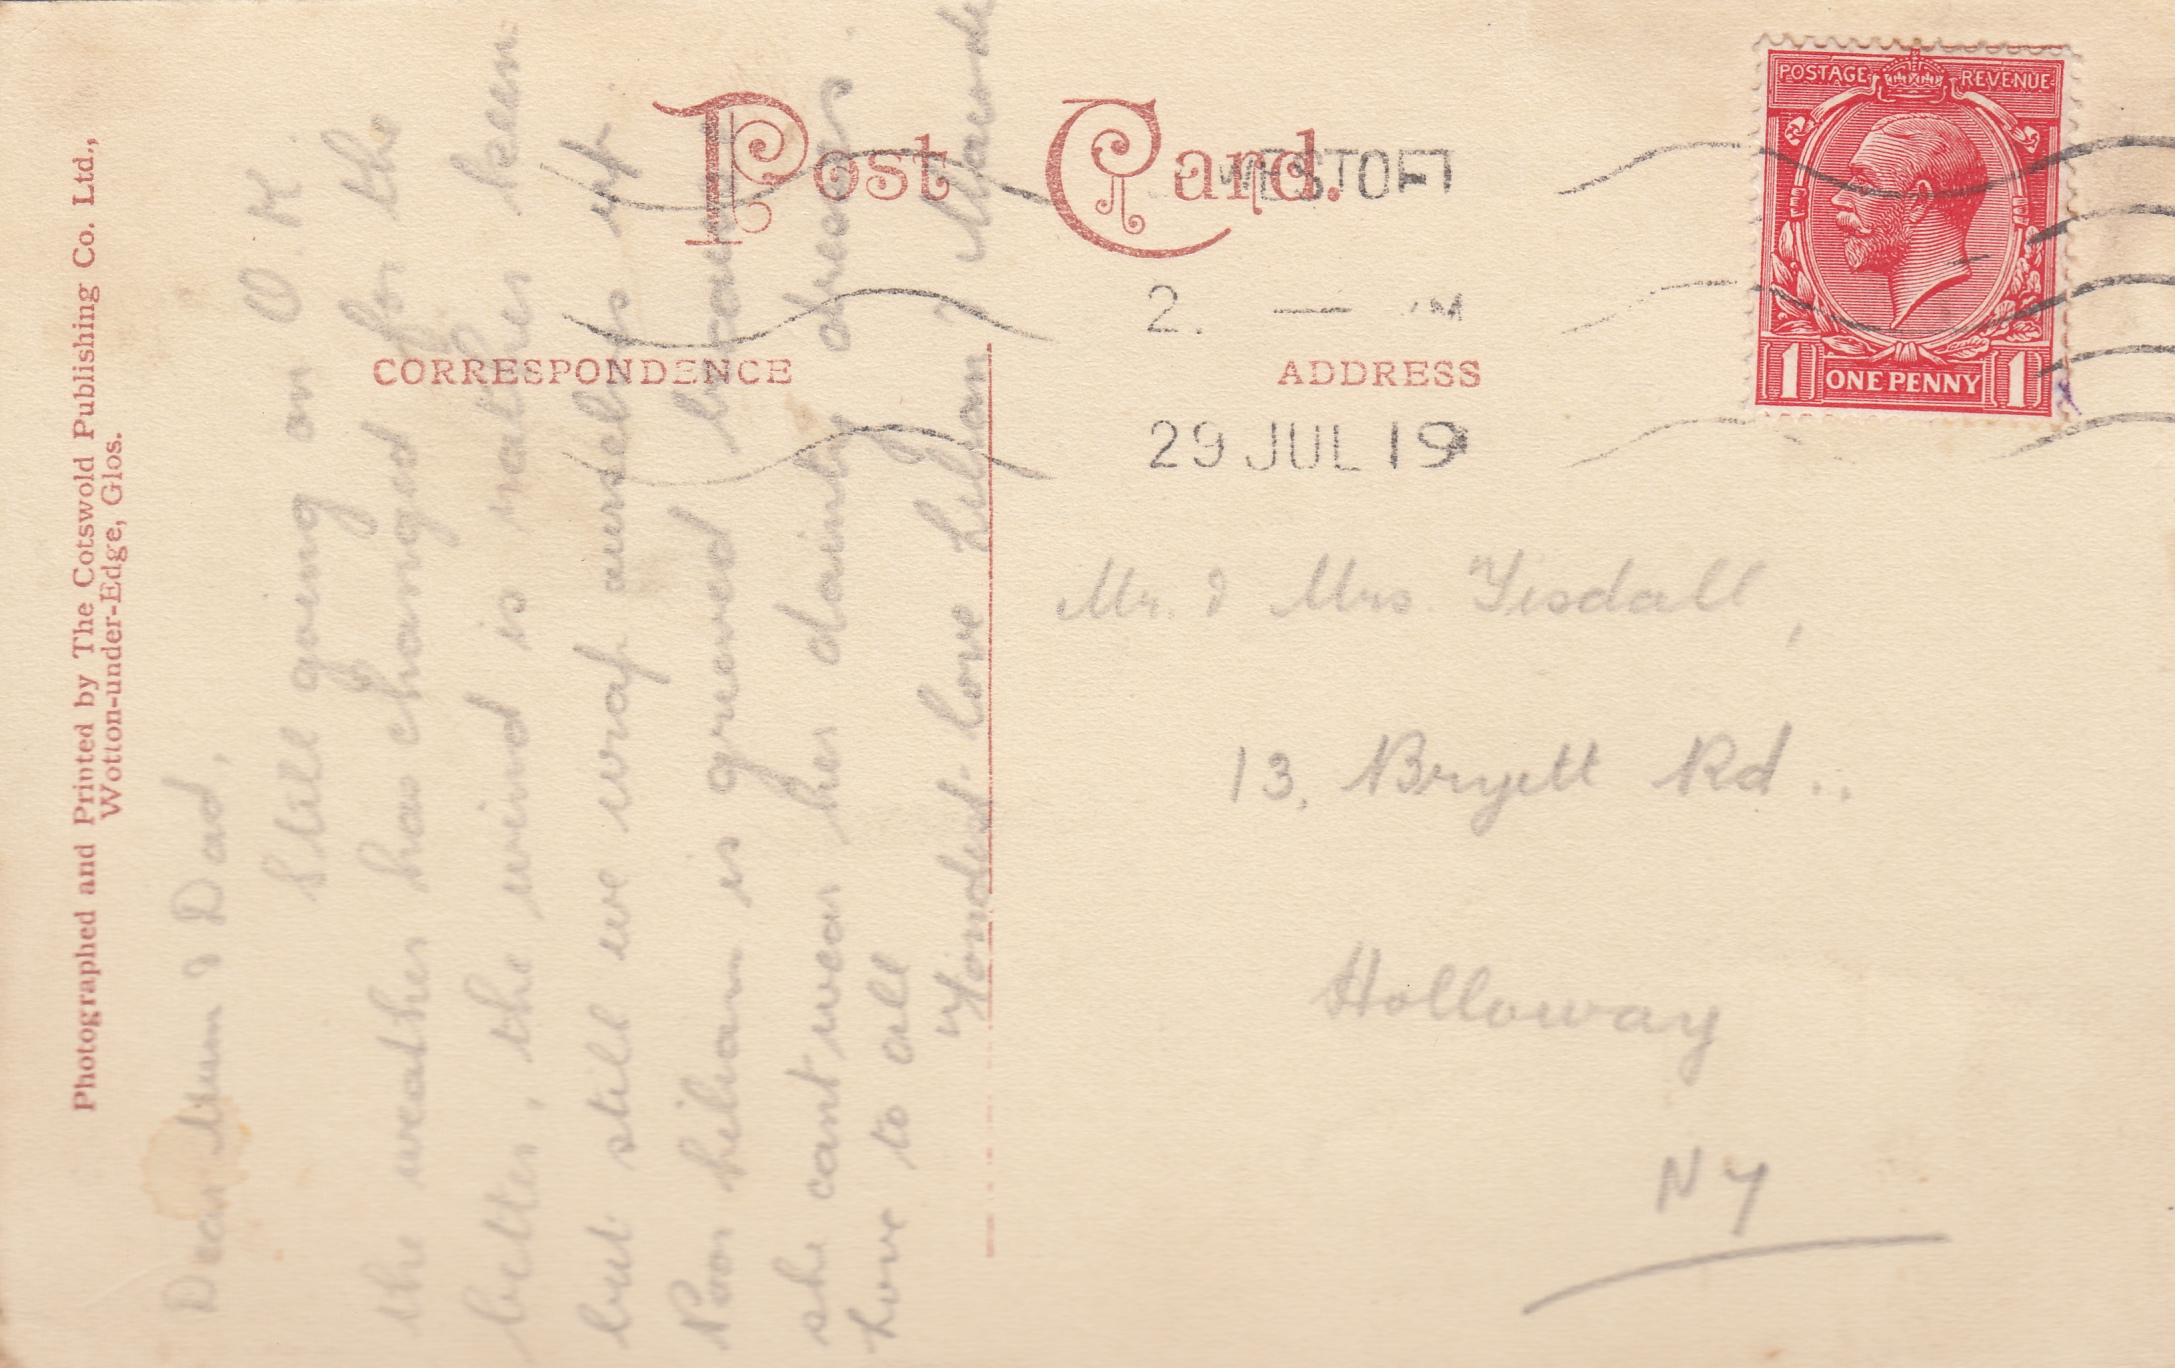 Photographed and Printed by The Cotswold Publishing Co. Ltd.,
Wotton-under-Edge, Glos.
Post Card.
CORRESPONDENCE
ADDRESS
POSTAGE REVENUE
1 ONE PENNY 1
WESTOFT
2. — M
29 JUL 19
Dear Mum & Dad,
Still going on O.K
the weather has changed for the
better, the wind is rather keen
but still we wrap ourselves up
Poor Lilian is grieved because
she cant wear her dainty dresses.
Love to all
Fondest love Lilian & Maude
Mr. & Mrs. Tisdall,
13, Bryett Rd..
Holloway
N 7